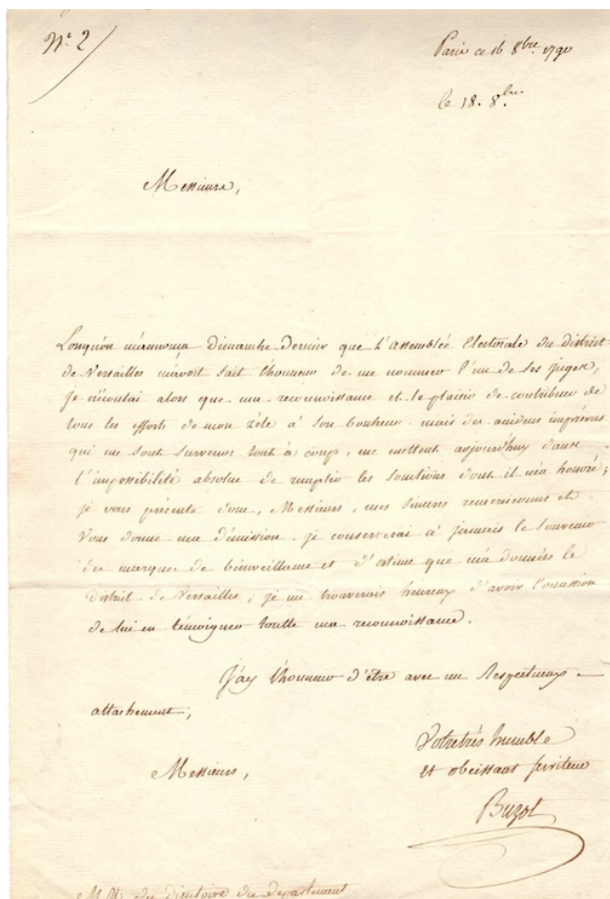 N.° 2
Paris ce 16 8bre 1790
le 18. 8bre
Messieurs,
Lorsqu'on m'annonca dimanche dernier que L'assemblée Electorale du district
de Versailles m'avoit fait l'honneur de me nommer l'un de ses juges,
je n'écoutai alors que ma reconnoissance et le plaisir de contribuer de
tous les efforts de mon zèle à son bonheur. mais des accidens imprévus
qui me sont survenus tout à coup, me mettent aujourd'huy dans
l'impossibilité absolue de remplir les fonctions dont il m'a honoré;
je vous présente donc, Messieurs, mes sinceres remerciemens et
Vous donne ma démission. je conserverai à jamais le souvenir
des marques de bienveillance et d'estime que m'a données le
District de Versailles; je me trouverais heureux d'avoir l'occasion
de lui en témoigner toutte ma reconnoissance.
J'ay l'honneur d'être avec un Respectueux
attachement,
Messieurs,
Votre très humble
et obeissant serviteur
Buzot
MM. du Directoire du Departement